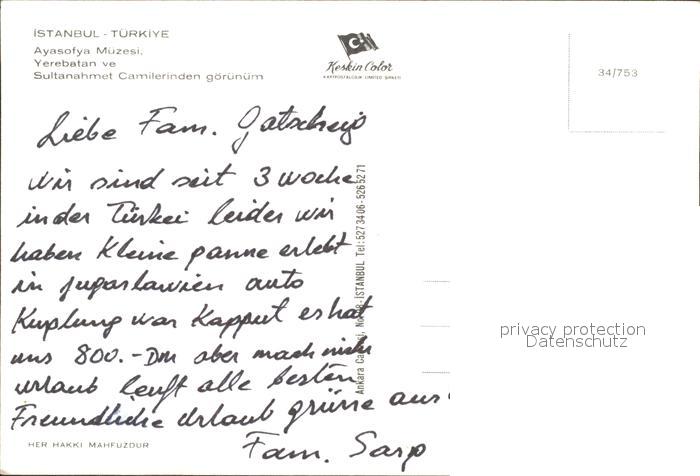 İSTANBUL - TÜRKİYE
Ayasofya Müzesi,
Yerebatan ve
Sultanahmet Camilerinden görünüm
Keskin Color
KARTPOSTALCILIK LIMITED ŞİRKETİ
34/753
Liebe Fam.
wir sind seit 3 woche
in der Türkei leider wir
haben Kleine panne erlebt
in jugoslawien auto
Kuplung war Kapput es hat
uns 800.-DM aber mach nicht
urlaub leuft alle besten
Freundliche Urlaub grüsse aus
Fam. Sarp
Ankara Caddesi, No: -İSTANBUL Tel: 5273406-5265271
privacy protection
Datenschutz
HER HAKKI MAHFUZDUR